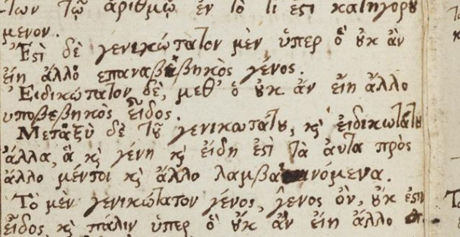 των τῷ ἀριθμῷ ἐν τῷ τί ἐστι κατηγορού
μενον.
Ἔστι δὲ γενικώτατον μὲν ὑπὲρ ὃ οὐκ ἂν
εἴη ἄλλο ἐπαναβεβηκὸς γένος.
Εἰδικώτατον δὲ, μεθ' ὃ οὐκ ἂν εἴη ἄλλο
ὑποβεβηκὸς εἶδος.
Μεταξὺ δὲ τοῦ γενικωτάτου, καὶ εἰδικωτάτου
ἄλλα, ἃ καὶ γένη καὶ εἴδη ἐστὶ τὰ αὐτὰ πρὸς
ἄλλο μέντοι καὶ ἄλλο λαμβανόμενα.
Τὸ μὲν γενικώτατον γένος, γένος ὂν, οὐκ ἔστιν
εἶδος καὶ πάλιν ὑπὲρ ὃ οὐκ ἂν εἴη ἄλλο